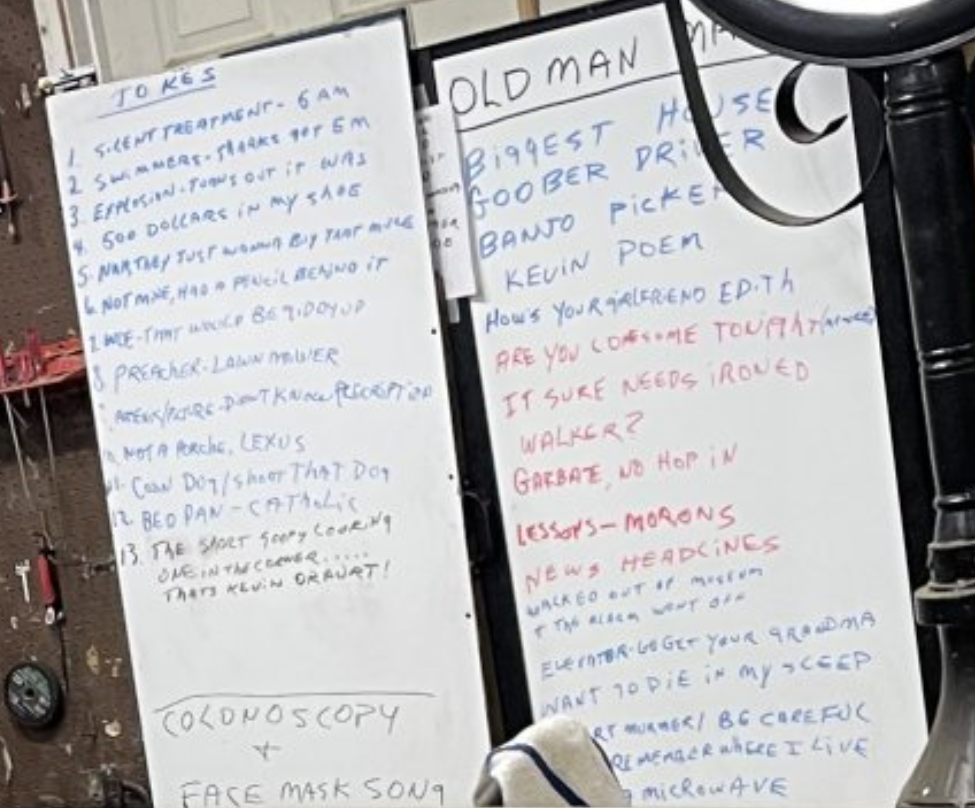 JOKES
1. SILENT TREATMENT - 6 AM
2. SWIMMERS - SHARKS GOT EM
3. EXPLOSION - TURNS OUT IT WAS
4. 500 DOLLARS IN MY SHOE
5. NAH THEY JUST WANNA BUY THAT MULE
6. NOT MINE, HAD A PENCIL BEHIND IT
THAT WOULD BE GIDDYUP
8. PREACHER - LAWN MOWER
DIDN'T KNOW PRESCRIPTION
NOT A PORCHE, LEXUS
11. COON DOG / SHOOT THAT DOG
12. BED PAN - CATHOLIC
13. THE SHORT GOOFY LOOKING
ONE IN THE CORNER.....
THATS KEVIN
COLONOSCOPY
+
FACE MASK SONG
OLD MAN
BIGGEST HOUSE
GOOBER DRIVER
BANJO PICKER
KEVIN POEM
HOW'S YOUR GIRLFRIEND EDITH
ARE YOU LONESOME TONIGHT
IT SURE NEEDS IRONED
WALKER?
GARBAGE, NO HOP IN
LESSONS - MORONS
NEWS HEADLINES
WALKED OUT OF MUSEUM
+ THE ALARM WENT OFF
ELEVATOR - GO GET YOUR GRANDMA
WANT TO DIE IN MY SLEEP
MURMER / BE CAREFUL
REMEMBER WHERE I LIVE
MICROWAVE